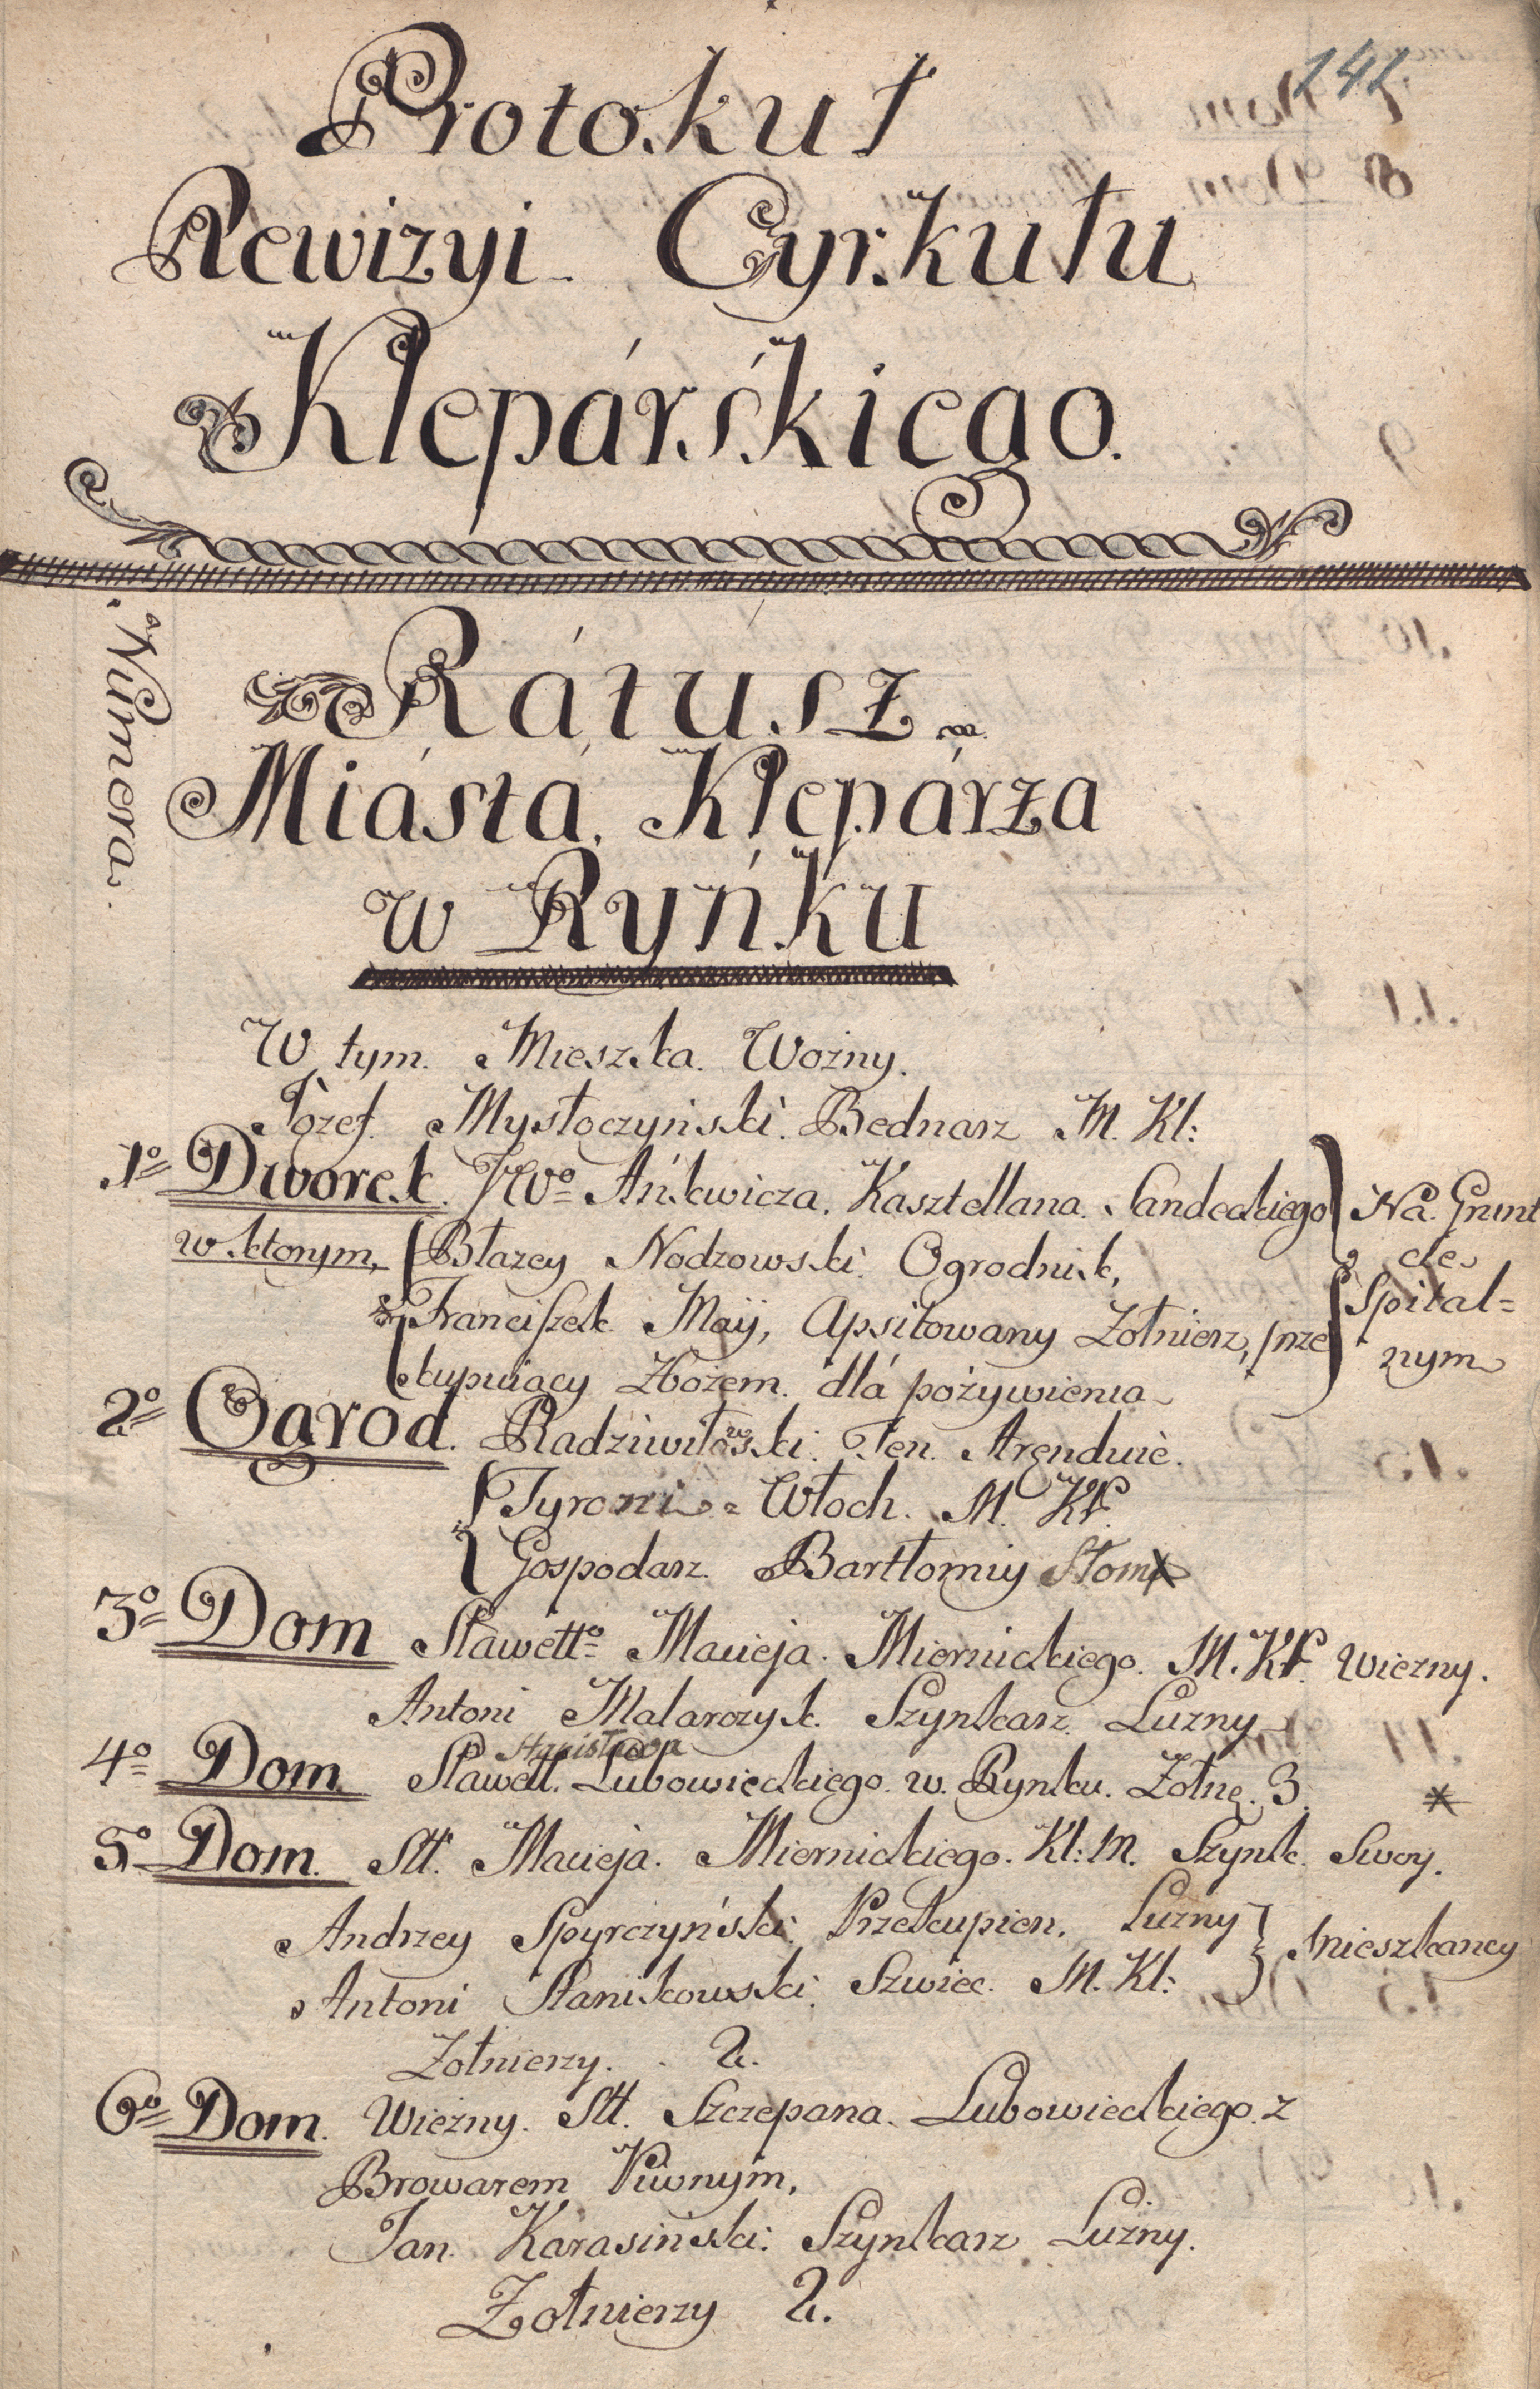 141
Protokuł
Rewizyi Cyrkułu
Klepárśkiego.
Numera.
Rátusz
Miástá Klepárza
w Ryńku
W tym Mieszka Wożny.
Józef Mysłoczyński Bednarz M. Kl:
1º Dworek JWº Ańkwicza Kasztellana Sandeckiego
w ktorym, Błazey Nodzowski Ogrodnik,
Franciszek Maÿ, Apsitowany Zołnierz, prze
kupuiący Zbożem dlá pożywienia
Na Grunt
cie
Spital=
nym
2º Ogrod. Radziwiłowski Ten. Arenduie.
Tyroni Włoch. M. Kl.
Gospodarz Bartłomiy Słoma
3º Dom Sławettº Macieja Miernickiego. M. Kl. Wiezny.
Antoni Malarczyk Szynkarz Luzny
Stanisława
4º Dom Sławett. Lubowieckiego w Rynku. Zołnę. 3. *
5º Dom. Stt. Macieja Miernickiego. Kl: M. Szynk Swoy.
Andrzey Spyrczyński Przekupien, Luzny
Antoni Stanikowski Szwiec M. Kl:
mieszkancy
Zołnierzy. 2.
6º Dom. Wiezny. Stt. Szczepana Lubowieckiego z
Browarem Piwnym,
Jan Karasiński: Szynkarz Luźny.
Zołnierzy 2.